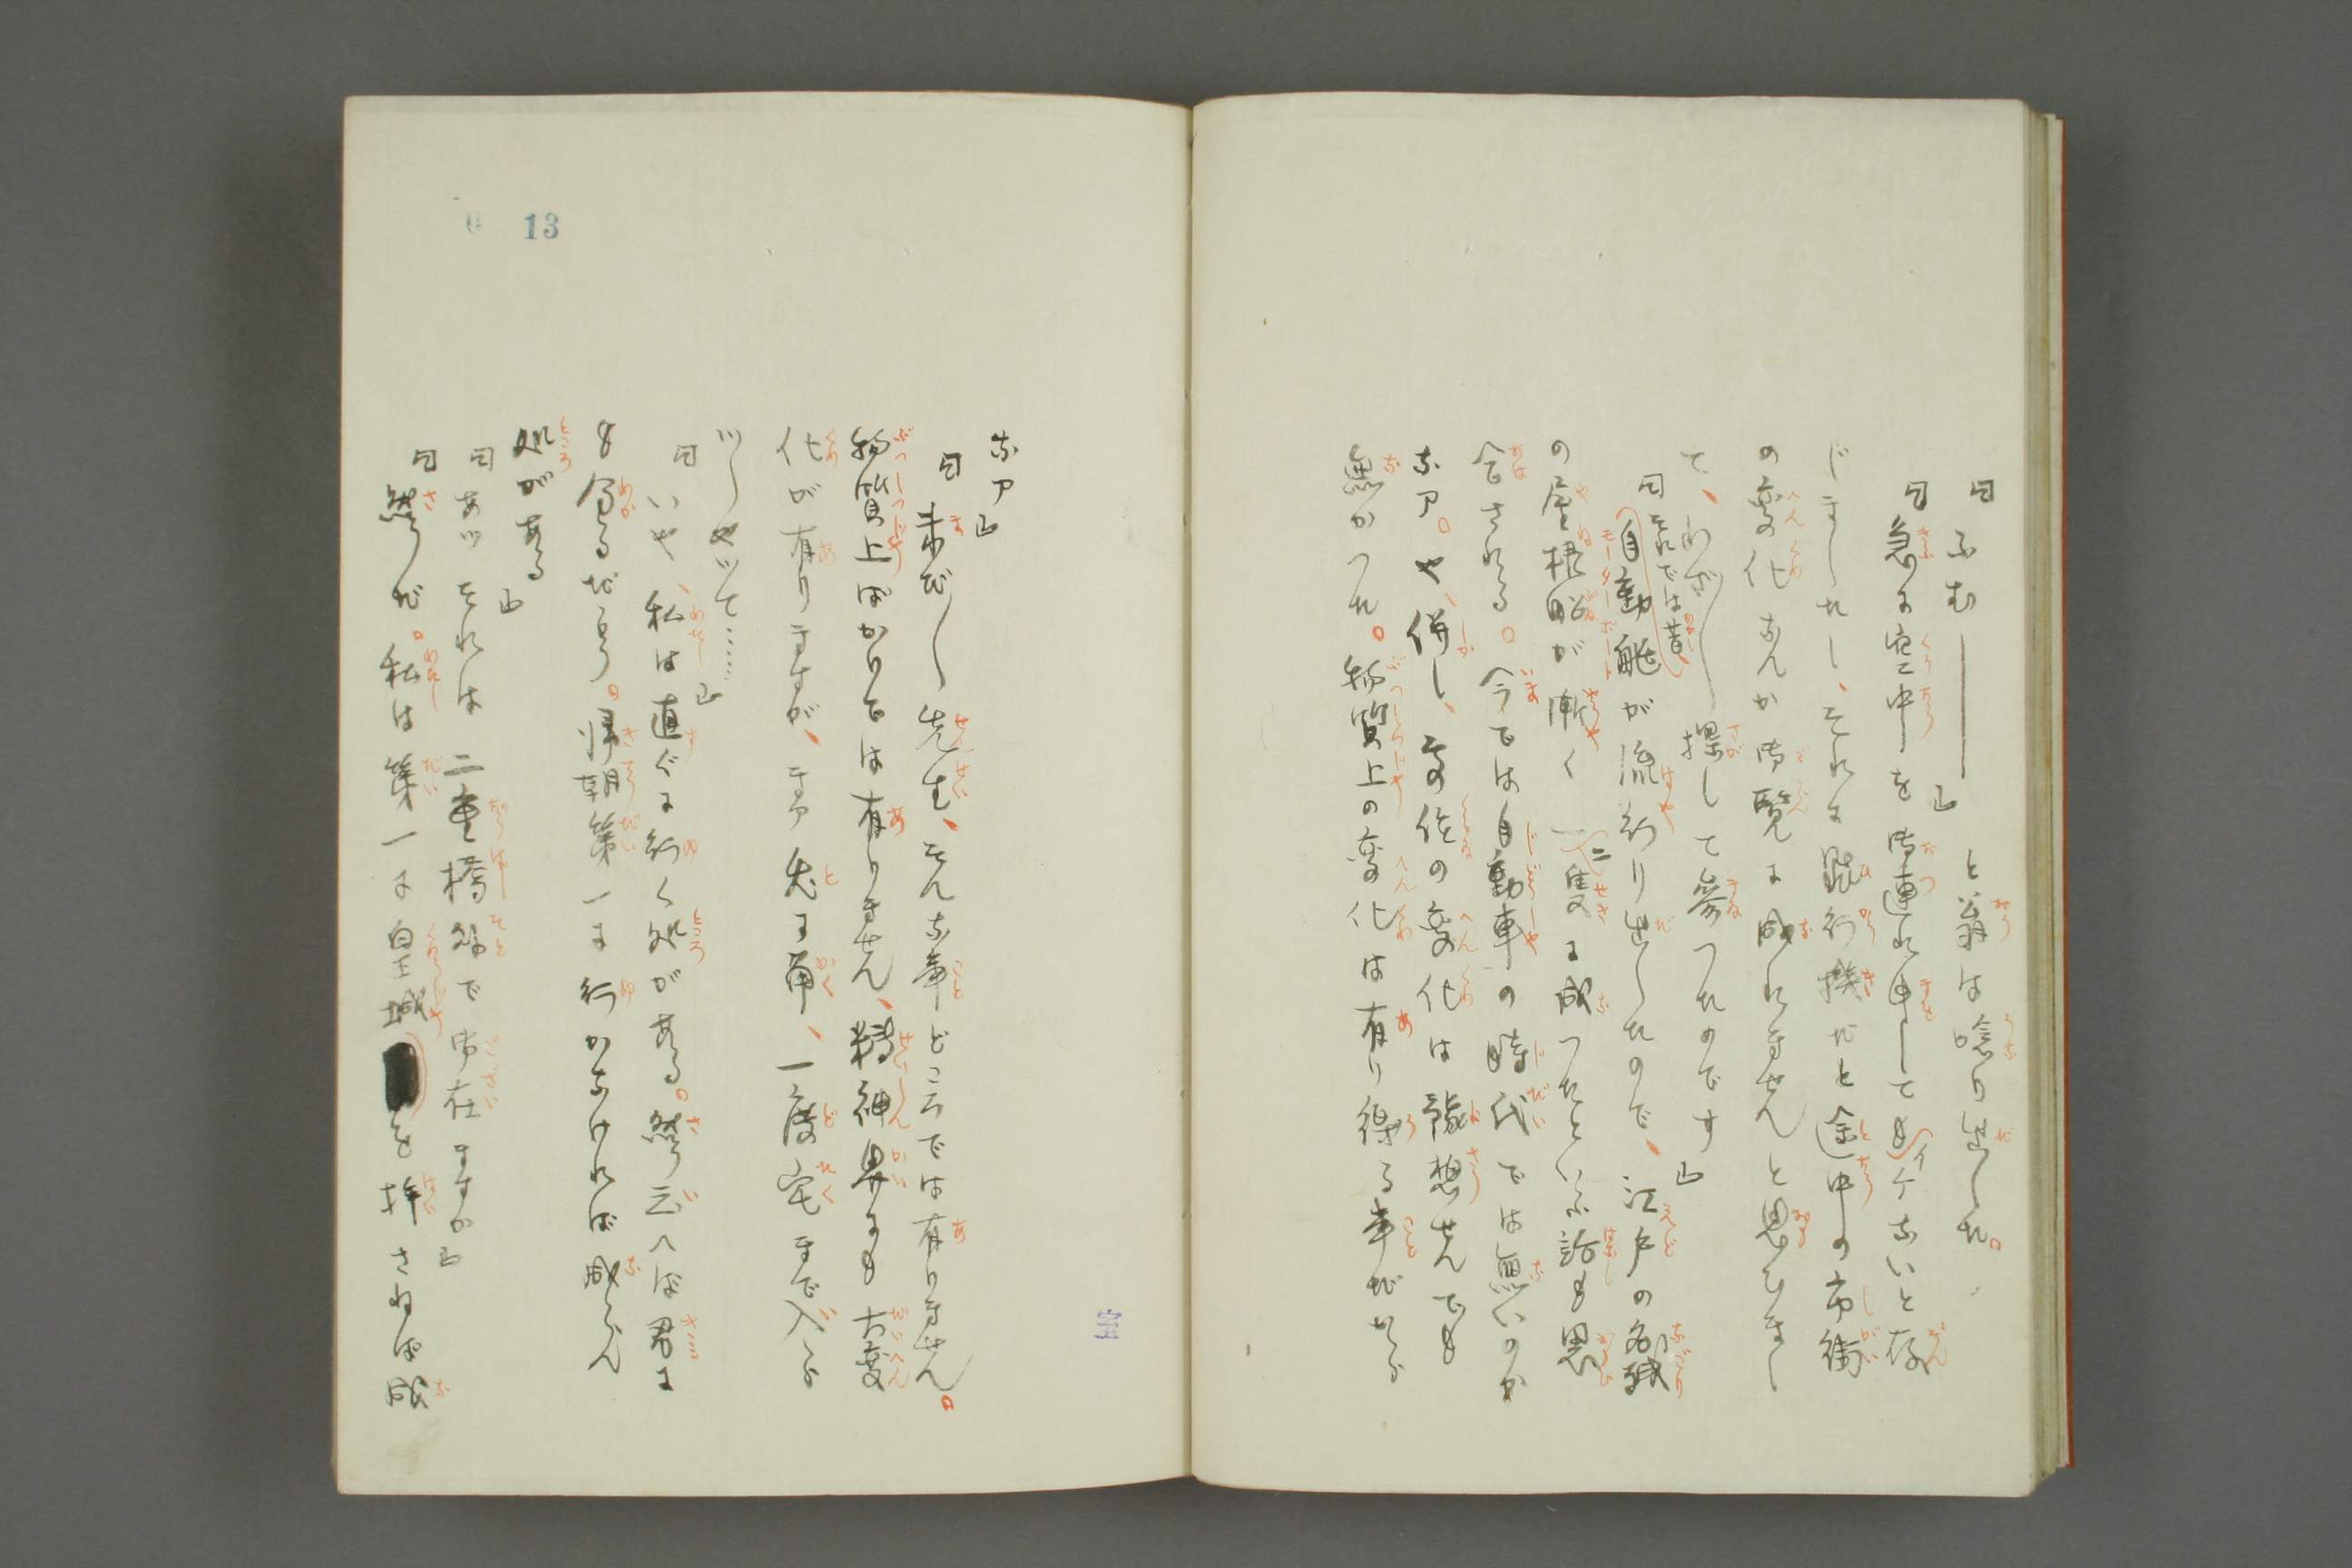 「ふむ――」と翁は唸り出した。
「急に空中を御連れ申してもイケないと存
じましたし、それに飛行機だと途中の市街
の変化なんか御覧に成れませんと思ひまし
て、わざ〱探して参つたのです」
「それでは昔、自動艇が流行り出したので、江戸の名残
の屋根船が漸く二隻に成つたといふ話も思
合される。今では自動車の時代では無いのか
なア。や、併し、この位の変化は予想せんでも
無かつた。物質上の変化は有り得る事だから
なア」
「未だ〱先生、そんな事どころでは有りません。
物質上ばかりでは有りません、精神界にも大変
化が有りますが、まア兎に角、一度宅まで入ら
ツしやツて……」
「いや、私は直ぐに行く処がある。然う云へば君に
も分るだらう。帰朝第一に行かなければ成らん
処がある」
「あツそれは二重橋外で御在ますか」
「然うだ。私は第一に皇城を拝さねば成
13